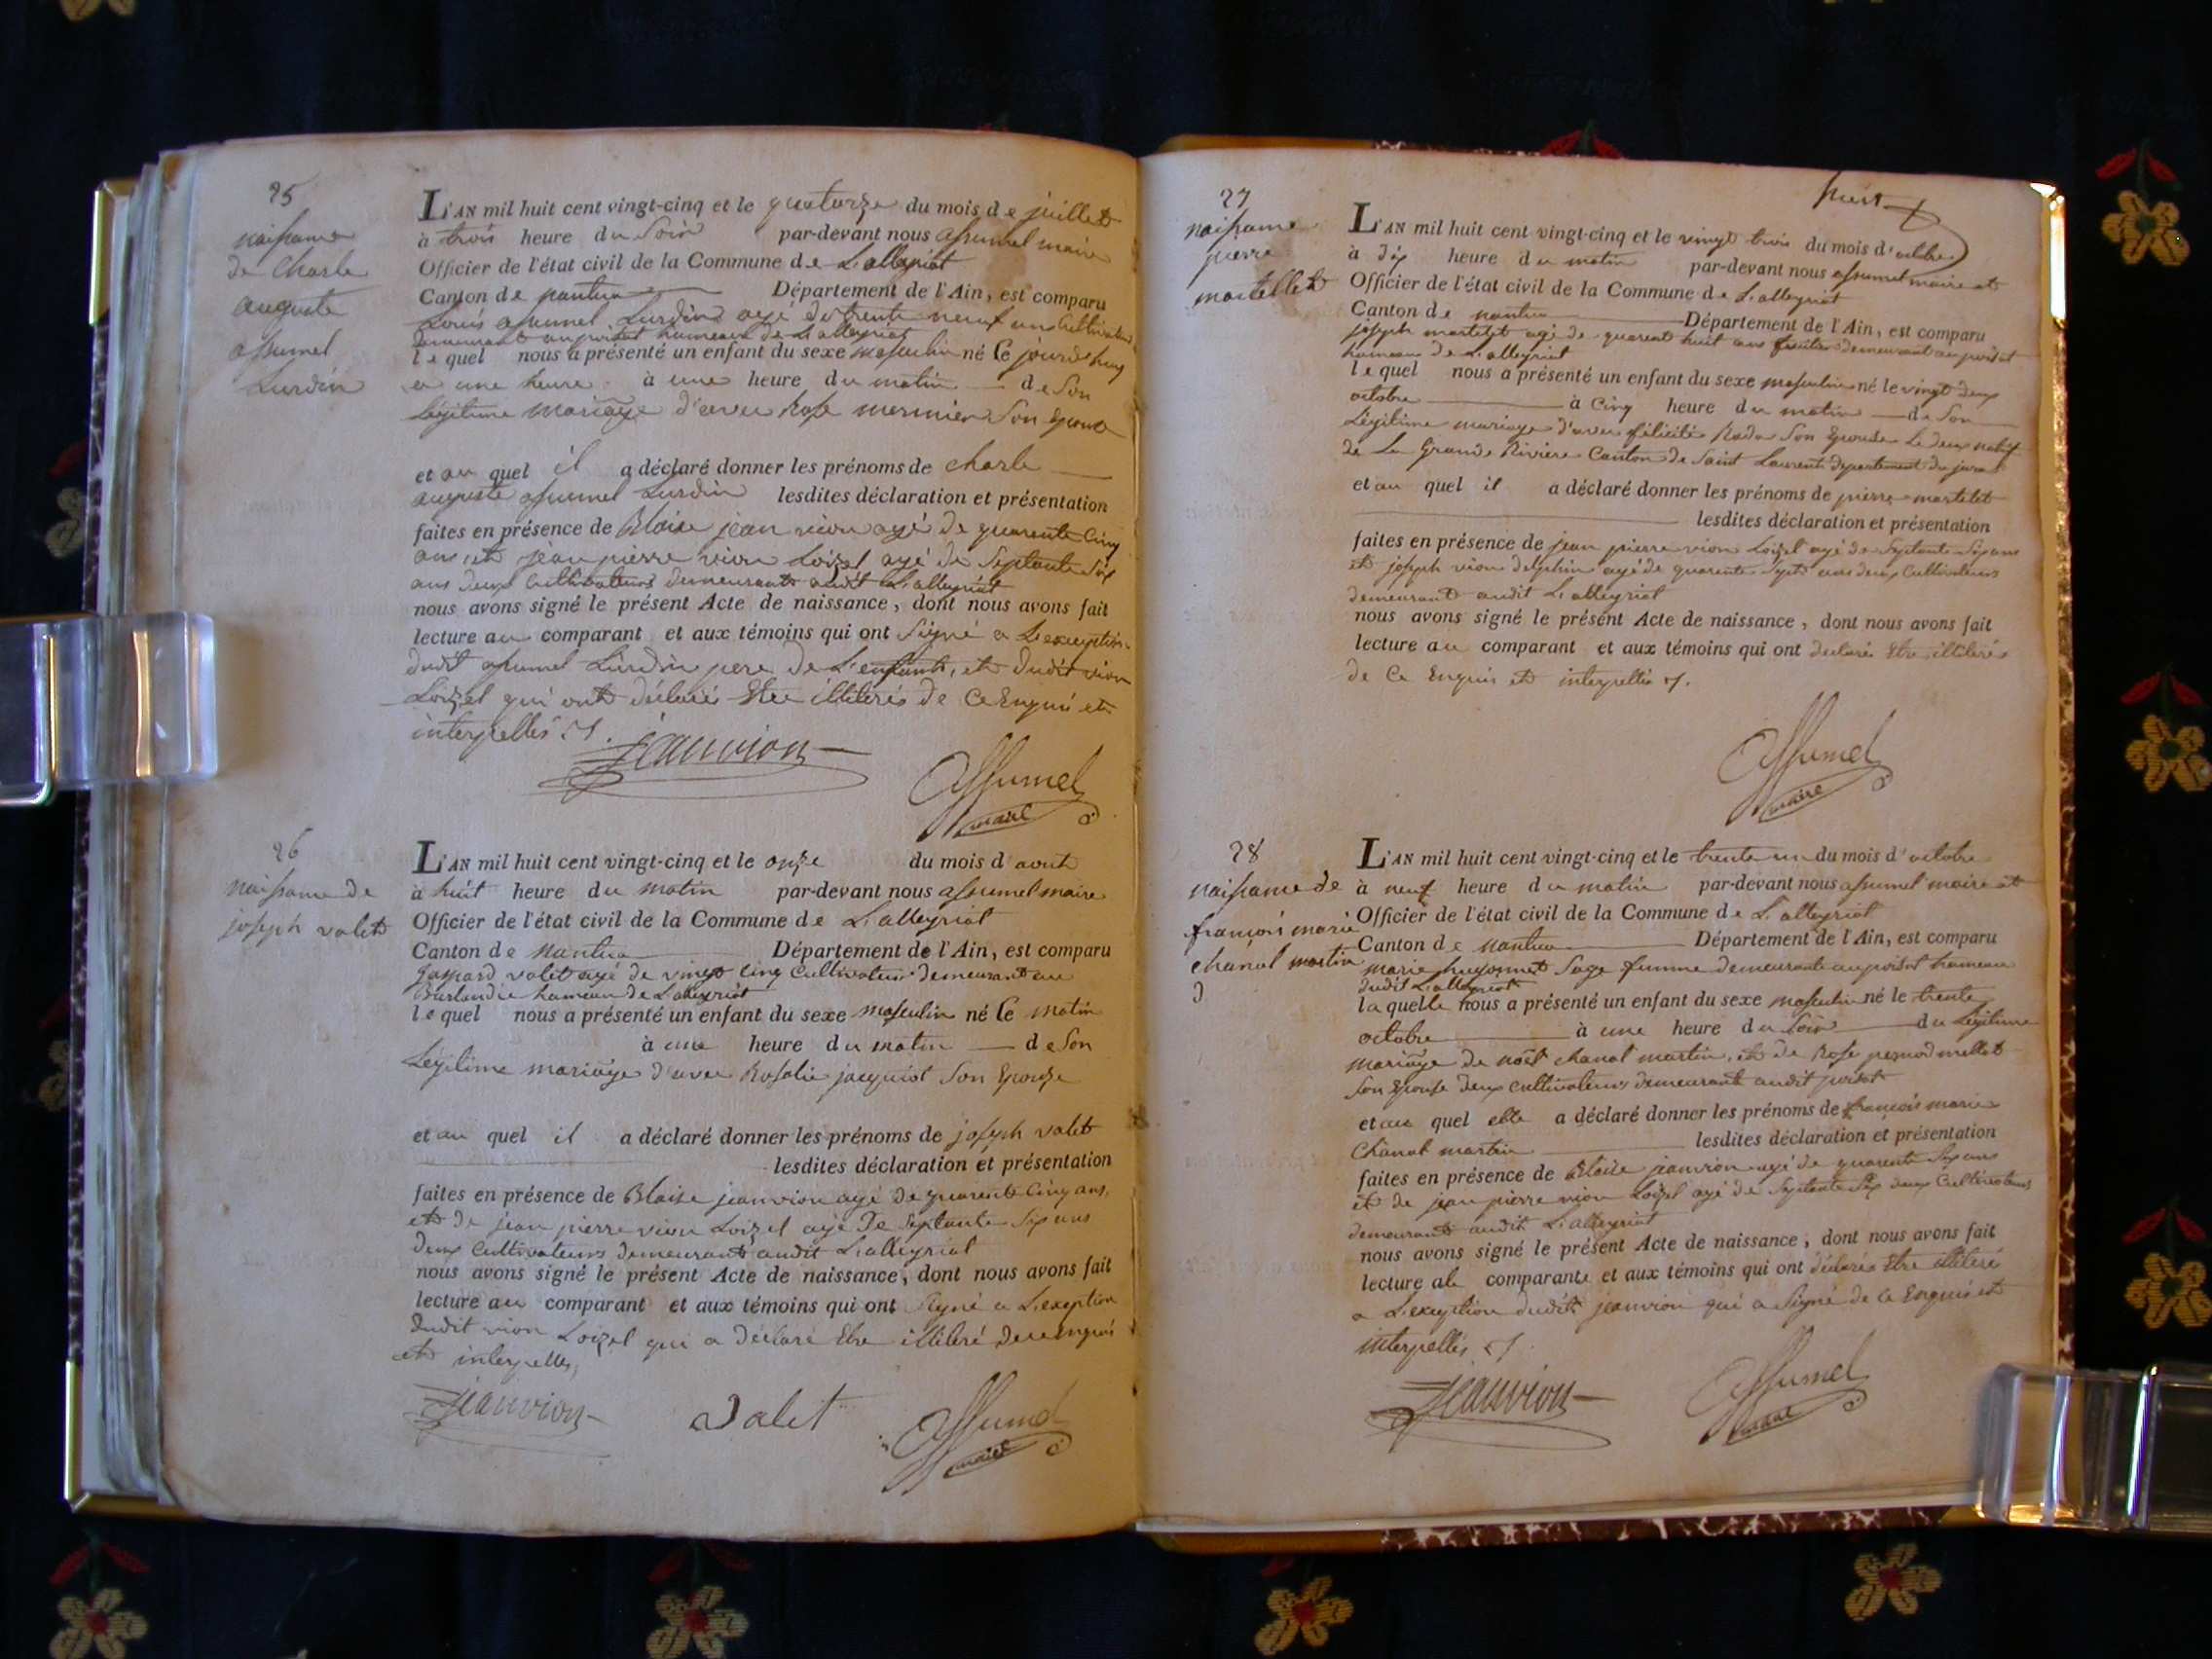 25
naissance
de Charle
auguste
assumel
Lurdin
L'AN mil huit cent vingt-cinq et le quatorze du mois de juillet
à trois heure du Soir par-devant nous assumel maire
Officier de l'état civil de la Commune de L'alleyriat
Canton de nantua Département de l'Ain, est comparu
Louis assumel Lurdin agé de trente neuf ans Cultivateur
demeurant au poisat hameau de L'alleyriat
lequel nous a présenté un enfant du sexe masculin né le jourdhuy
a une heure à une heure du matin de Son
Légitime mariage d'avec Rose mermier Son Epouse
et au quel il a déclaré donner les prénoms de Charle
auguste assumel Lurdin lesdites déclaration et présentation
faites en présence de Blaise jean vion agé de quarente Cinq
ans, et jean pierre vion Loizel agé de Septante Six
ans deux Cultivateurs demeurants audit L'alleyriat
nous avons signé le présent Acte de naissance, dont nous avons fait
lecture au comparant et aux témoins qui ont Signé a L'exception
dudit assumel Lurdin pere de L'enfant, et dudit vion
Loizel qui ont déclaré Etre illiterés de Ce Enquis et
interpellés
jeanvion
assumel
maire
26
naissance de
joseph valet
L'AN mil huit cent vingt-cinq et le onze du mois d'aout
à huit heure du matin par-devant nous assumel maire
Officier de l'état civil de la Commune de L'alleyriat
Canton de Nantua Département de l'Ain, est comparu
Gaspard valet agé de vingt Cinq Cultivateur demeurant au
Burlandier hameau de L'alleyriat
lequel nous a présenté un enfant du sexe masculin né le matin
à une heure du matin de Son
Légitime mariage d'avec Rosalie jacquiot Son Epouze
et au quel il a déclaré donner les prénoms de joseph valet
lesdites déclaration et présentation
faites en présence de Blaise jeanvion agé de quarente Cinq ans,
et de jean pierre vion Loizel agé de Septante Six ans
deux Cultivateurs demeurant audit L'alleyriat
nous avons signé le présent Acte de naissance, dont nous avons fait
lecture au comparant et aux témoins qui ont Signé a L'exeption
dudit vion Loizel qui a déclaré Etre illiteré de ce enquis
et interpellés,
jeanvion
Valet
assumel
maire
27
naissance
pierre
martellet
L'AN mil huit cent vingt-cinq et le vingt trois du mois d'octobre
à dix heure du matin par-devant nous assumel maire et
Officier de l'état civil de la Commune de L'alleyriat
Canton de nantua Département de l'Ain, est comparu
joseph martelet agé de quarent huit ans demeurant au poisat
hameau de L'alleyriat
lequel nous a présenté un enfant du sexe masculin né le vingt deux
octobre à Cinq heure du matin de Son
Légitime mariage d'avec félicité Son Epouse Le deux natif
de La Grande Riviere Canton de Saint Laurent departement du jura
et au quel il a déclaré donner les prénoms de pierre martelet
lesdites déclaration et présentation
faites en présence de jean pierre vion Loizel agé de Septante Six ans
et joseph vion delphin agé de quarente Sept ans deux Cultivateurs
demeurant audit L'alleyriat
nous avons signé le présent Acte de naissance, dont nous avons fait
lecture au comparant et aux témoins qui ont declaré Etre illiterés
de Ce Enquis et interpellés
assumel
maire
28
naissance de
francois marie
chanal martin
L'AN mil huit cent vingt-cinq et le trente un du mois d'octobre
à neuf heure du matin par-devant nous assumel maire et
Officier de l'état civil de la Commune de L'alleyriat
Canton de nantua Département de l'Ain, est comparu
marie hugonnet Sage femme demeurante au poisat hameau
dudit L'alleyriat
laquelle nous a présenté un enfant du sexe masculin né le trente
octobre à une heure du Soir du Légitime
mariage de noël chanal martin, et de Rose pernod mellet
Son Epouse deux Cultivateurs demeurant audit poisat
et au quel elle a déclaré donner les prénoms de francois marie
Chanal martin lesdites déclaration et présentation
faites en présence de Blaise jeanvion agé de quarente Six ans
et de jean pierre vion Loizel agé de Septante Six deux Cultivateurs
demeurant audit L'alleyriat
nous avons signé le présent Acte de naissance, dont nous avons fait
lecture ala comparante et aux témoins qui ont déclarés Etre illiteré
a L'exception dudit jeanvion qui a Signé de Ce Enquis et
interpellés
jeanvion
assumel
maire